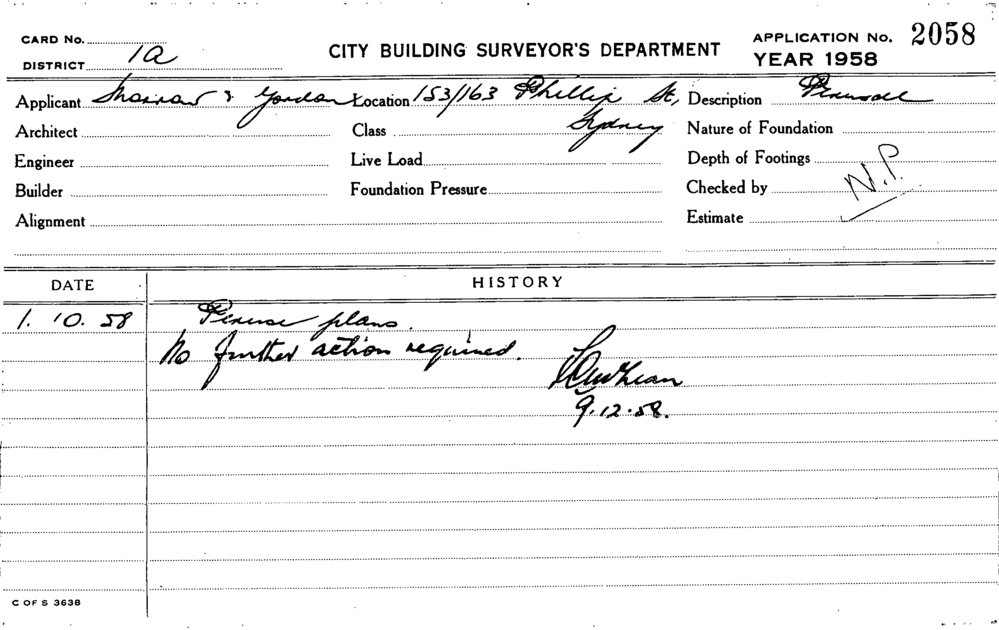 CARD No.
DISTRICT 1a
CITY BUILDING SURVEYOR'S DEPARTMENT
APPLICATION No. 2058
YEAR 1958
Applicant & Gordon Location 153/163 Phillip St, Sydney Description Perusal
Architect Class Nature of Foundation
Engineer Live Load Depth of Footings
Builder Foundation Pressure Checked by N.P.
Alignment Estimate
DATE HISTORY
1. 10. 58 Peruse plans.
No further action required.
9.12.58.
C OF S 3638